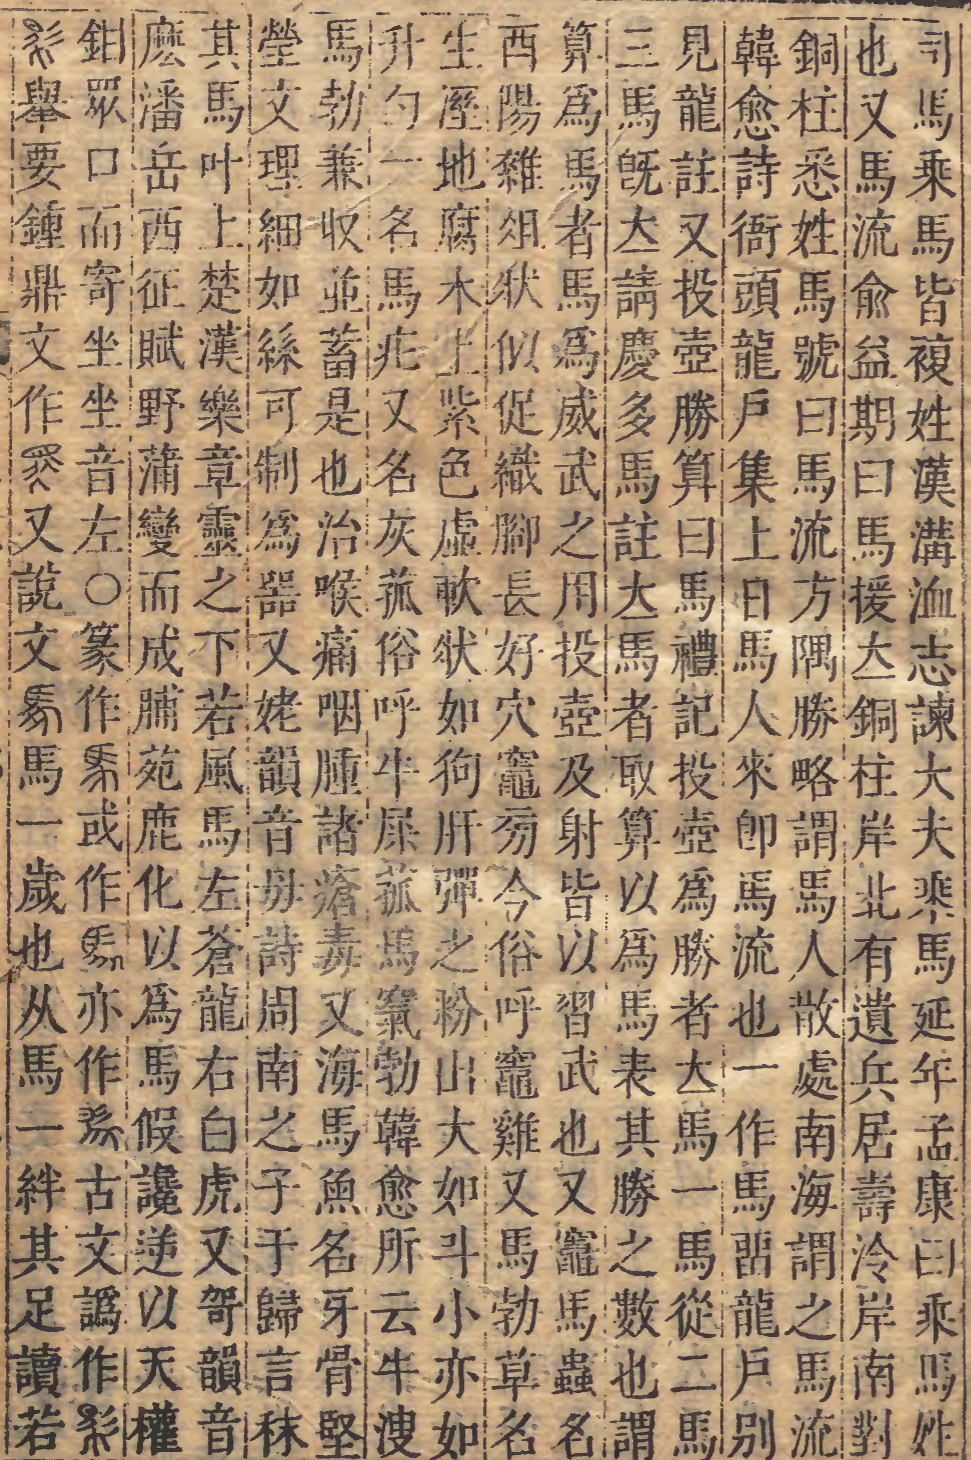 司馬乘馬皆複姓漢溝洫志諫大夫乘馬延年孟康曰乘馬姓
也又馬流俞益期曰馬援立銅柱岸北有遺兵居壽泠岸南對
銅柱悉姓馬號曰馬流方隅勝略謂馬人散處南海謂之馬流
韓愈詩衙頭龍戶集上日馬人來卽馬流也一作馬畱龍戶别
見龍註又投壺勝算曰馬禮記投壺爲勝者立馬一馬從二馬
三馬旣立請慶多馬註立馬者取算以爲馬表其勝之數也謂
算爲馬者馬爲威武之用投壺及射皆以習武也又竈馬蟲名
酉陽雜俎狀似促織腳長好穴竈旁今俗呼竈雞又馬勃草名
生溼地腐木上紫色虛軟狀如狗肝彈之粉出大如斗小亦如
升勺一名馬疕又名灰菰俗呼牛屎菰馬窠勃韓愈所云牛溲
馬勃兼收並蓄是也治喉痛咽腫諸瘡毒又海馬魚名牙骨堅
瑩文理細如絲可制爲器又姥韻音母詩周南之子于歸言秣
其馬叶上楚漢樂章靈之下若風馬左蒼龍右白虎又哿韻音
麼潘岳西征賦野蒲變而成脯苑鹿化以爲馬假讒逆以天權
鉗眾口而寄坐坐音左○篆作或作亦作古文譌作
舉要鍾鼎文作又說文馬一歲也从馬一絆其足讀若